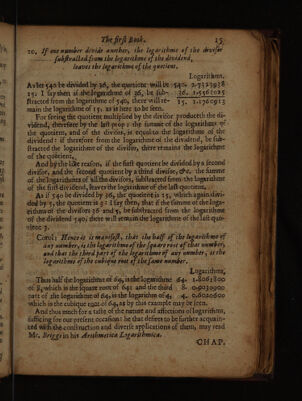 The first Book. 15
10. If one number divide another, the logarithme of the divisor
substracted from the logarithme of the dividend,
leaves the logarithme of the quotient.
Logarithm.
As let 540 be divided by 36, the quotient will be 540 2.7323938
15. I say then if the logarithme of 36, be sub- 36. 1.5563025
stracted from the logarithme of 540, there will re- 15. 1.1760913
main the logarithme of 15. as is here to be seen.
For seeing the quotient multiplied by the divisor produceth the di-
vidend, therefore by the last prop: the summe of the logarithmes of
the quotient, and of the divisor, is equall to the logarithme of the
dividend: if therefore from the logarithme of the dividend, be sub-
stracted the logarithme of the divisor, there remains the logarithme
of the quotient.
And by the like reason, if the first quotient be divided by a second
divisor, and the second quotient by a third divisor, &c. the summe
of the logarithmes of all the divisors, substracted from the logarithme
of the first dividend, leaves the logarithme of the last quotient.
As if 540 be divided by 36, the quotient is 15, which again divi-
ded by 5, the quotient is 3: I say then, that if the summe of the loga-
rithmes of the divisors 36 and 5, be substracted from the logarithme
of the dividend 540, there will remain the logarithme of the last quo-
tient 3.
Coroll: Hence it is manifest, that the half of the logarithme of
any number, is the logarithme of the square root of that number,
and that the third part of the logarithme of any number, is the
logarithme of the cubique root of the same number.
Logarithm,
Thus half the logarithme of 64, is the logarithme 64. 1.8061800
of 8, which is the square root of 64: and the third 8. 0.9030900
part of the logarithme of 64, is the logarithm of 4; 4. 0.6020600
which is the cubique root of 64, as by this example may be seen.
And thus much for a taste of the nature and affections of logarithms,
sufficing for our present occasion: he that desires to be further acquain-
ted with the construction and diverse applications of them, may read
Mr. Briggs in his Arithmetica Logarithmica.
CHAP.